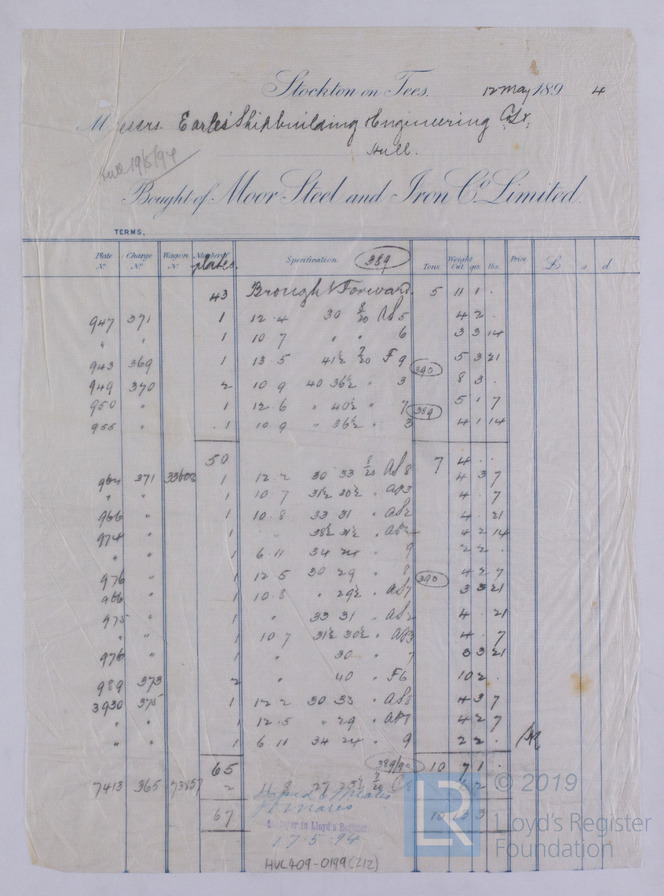 Stockton on Tees. 12 May 1894
Messrs. Earle's Shipbuilding Engineering Co Ld
Hull.
Hull 19/5/94
Bought of Moor Steel and Iron Co. Limited.
TERMS.
Plate No. Charge No. Wagon No. Number of plates. Specification 389 Tons Weight Cwt. qrs. lbs. Price £ s d
43 Brought Forward 5 11 1 .
947 371 1 12.4 30 8/20 AS 5 4 2 .
" " 1 10 7 " " 6 3 3 14
943 369 1 13.5 41½ 7/20 F 9 5 3 21
390
949 370 2 10 9 40 36½ " 3 8 3 .
950 " 1 12.6 " 40½ " 7 389 5 1 7
955 " 1 10 9 " 36½ " 3 4 1 14
50 7 4 .
964 371 33602 1 12.2 30 33 8/20 AS 8 4 3 7
" " 1 10.7 31½ 30½ " AP3 4 . 7
966 " 1 10.8 33 31 " AS2 4 . 21
974 " 1 38½ 31½ " 4 2 14
" " 1 6.11 34 24 " 9 2 2 .
976 " 1 12.5 30 29 " 8 390 4 2 7
966 " 1 10.8 " 29½ " AS7 3 3 21
975 " 1 " 33 31 " AS2 4 . 21
" " 1 10.7 31½ 30½ " AP3 4 . 7
976 " 1 " 30 " 7 3 3 21
989 373 2 " 40 " F6 10 2 .
3930 375 1 12 2 30 33 " AS8 4 3 7
" " 1 12.5 " 29 " AP7 4 2 7
" " 1 6 11 34 24 " 9 2 2 .
65 389/90 10 7 1 .
7413 365 73857 2 11 8 27
67 10
Surveyor to Lloyd's Register
17.5.94
HUL409-0199(212)
LR © 2019
Lloyd's Register
Foundation